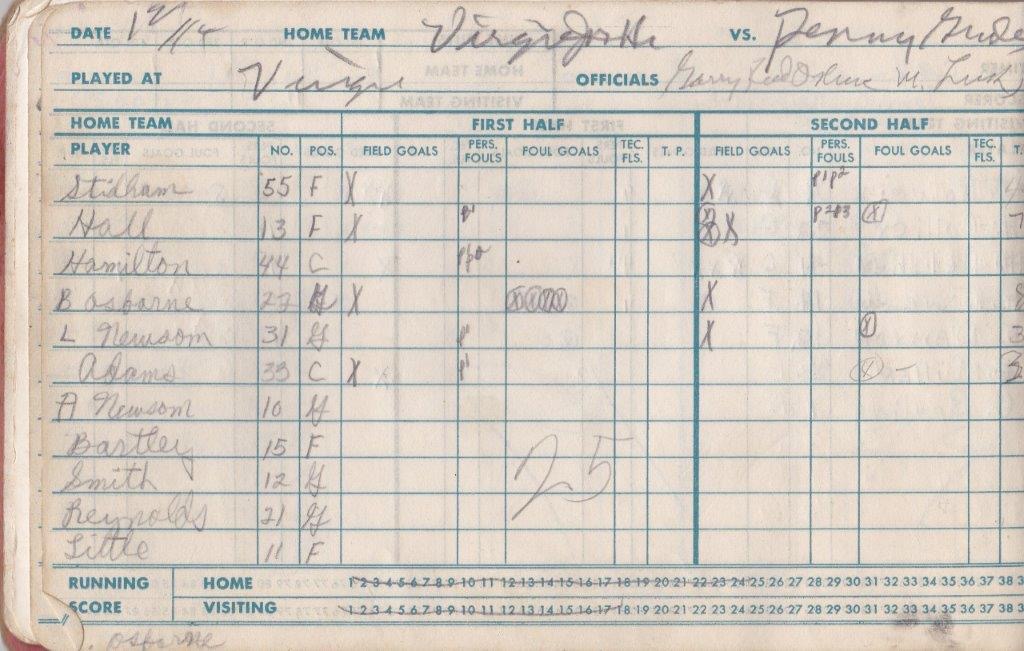 DATE 12/14 HOME TEAM VS. Penny
PLAYED AT Virgie OFFICIALS Garry
HOME TEAM FIRST HALF SECOND HALF
PLAYER NO. POS. FIELD GOALS PERS. FOULS FOUL GOALS TEC. FLS. T. P. FIELD GOALS PERS. FOULS FOUL GOALS TEC. FLS. T.
Stidham 55 F X X P1P2 4
Hall 13 F X P1 X X X P2P3 X 7
Hamilton 44 C
B Osborne G X X X X X X 8
L Newsom 31 G P1 X X 3
Adams 33 C X P1 X - 3
A Newsom 10 G
Bartley 15 F
Smith 12 G
Reynolds 21 G
Little 11 F
25
RUNNING SCORE
HOME 1 2 3 4 5 6 7 8 9 10 11 12 13 14 15 16 17 18 19 20 21 22 23 24 25 26 27 28 29 30 31 32 33 34 35 36 37 38 3
VISITING 1 2 3 4 5 6 7 8 9 10 11 12 13 14 15 16 17 18 19 20 21 22 23 24 25 26 27 28 29 30 31 32 33 34 35 36 37 38 3
Osborne